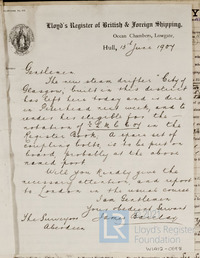 Lloyd's Register of British & Foreign Shipping,
Ocean Chambers, Lowgate,
Hull, 15th June 1907
Gentlemen
The new steam drifter "City of
Glasgow", built in this district
has left here today and is due in
Peterhead next week, and to
render her eligible for the
notation in the
Register Book. A spare set of
coupling bolts, is to be put on
board probably at the above
named port.
Will you kindly give the
necessary attention and report
to London in the usual course
I am Gentlemen
Your obedient Servant
James Barclay
The Surveyors
Aberdeen
W1012-0098
Lloyd's Register
Foundation